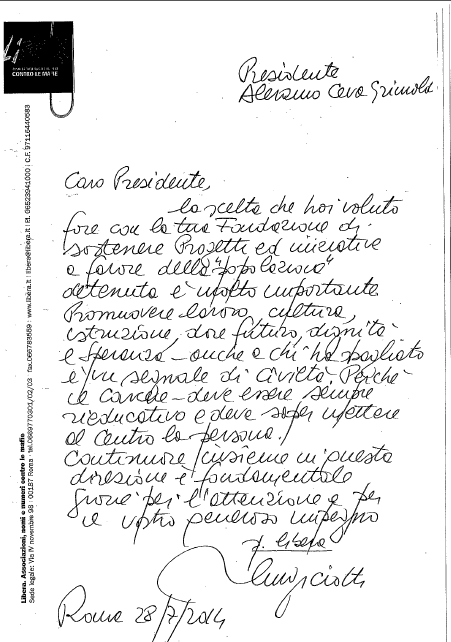 Libera
CONTRO LE MAFIE
Presidente
Aleramo Ceva Grimaldi
Caro Presidente,
la scelta che hai voluto
fare con la tua Fondazione di
sostenere Progetti ed iniziative
a favore della "popolazione"
detenuta è molto importante
Promuovere lavoro, cultura,
istruzione, dare futuro, dignità
e speranza - anche a chi ha sbagliato
è un segnale di civiltà. Perché
il carcere - deve essere sempre
rieducativo e deve saper mettere
al centro la persona.
Continuare insieme in questa
direzione è fondamentale
Grazie per l'attenzione e per
il vostro generoso impegno
x Libera
Luigi Ciotti
Roma 28/7/2014
Libera. Associazioni, nomi e numeri contro le mafie
Sede legale: Via IV novembre 98 : 00187 Roma : tel.0669770301/02/03 fax.066783559 : www.libera.it : libera@libera.it : P.I. 06523941000 : C.F. 97116440583